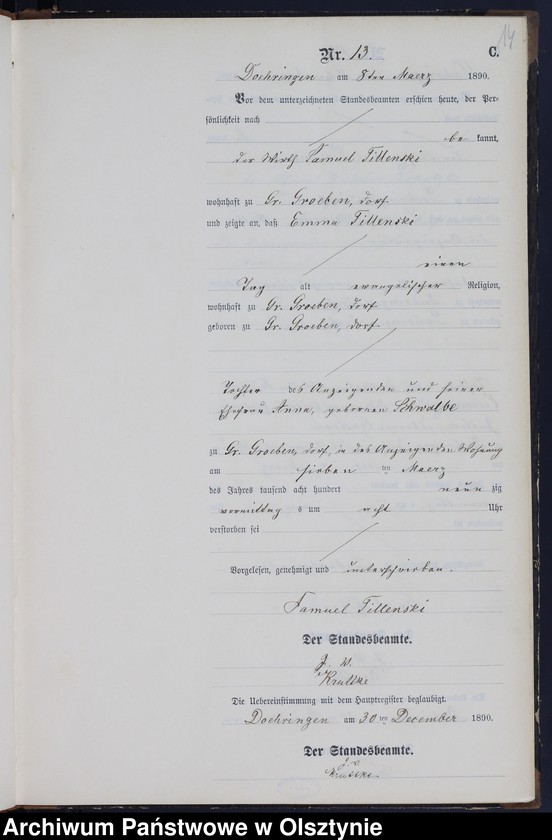 14
Nr. 13. C.
Doehringen am 8ten Maerz 1890.
Vor dem unterzeichneten Standesbeamten erschien heute, der Per-
sönlichkeit nach
be kannt,
der Wirth Samuel Tillenski
wohnhaft zu Gr. Groeben, Dorf
und zeigte an, daß Emma Tillenski
einen
Tag alt evangelischer Religion,
wohnhaft zu Gr. Groeben, Dorf
geboren zu Gr. Groeben, Dorf
Tochter des Anzeigenden und seiner
Ehefrau Anna, geborenen Schwalbe
zu Gr. Groeben, Dorf, in des Anzeigenden Wohnung
am sieben ten Maerz
des Jahres tausend acht hundert neun zig
vormittag s um acht Uhr
verstorben sei
Vorgelesen, genehmigt und unterschrieben.
Samuel Tillenski
Der Standesbeamte.
J. V.
Die Uebereinstimmung mit dem Hauptregister beglaubigt.
Doehringen am 30ten December 1890.
Der Standesbeamte.
J. V.
Archiwum Państwowe w Olsztynie